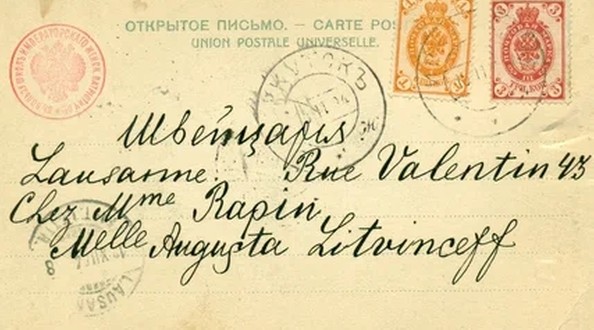 ОТКРЫТОЕ ПИСЬМО. – CARTE
UNION POSTALE UNIVERSELLE.
Швейцария
Lausanne. Rue Valentin 43
Chez Mme Rapin
Melle Augusta Litvinceff